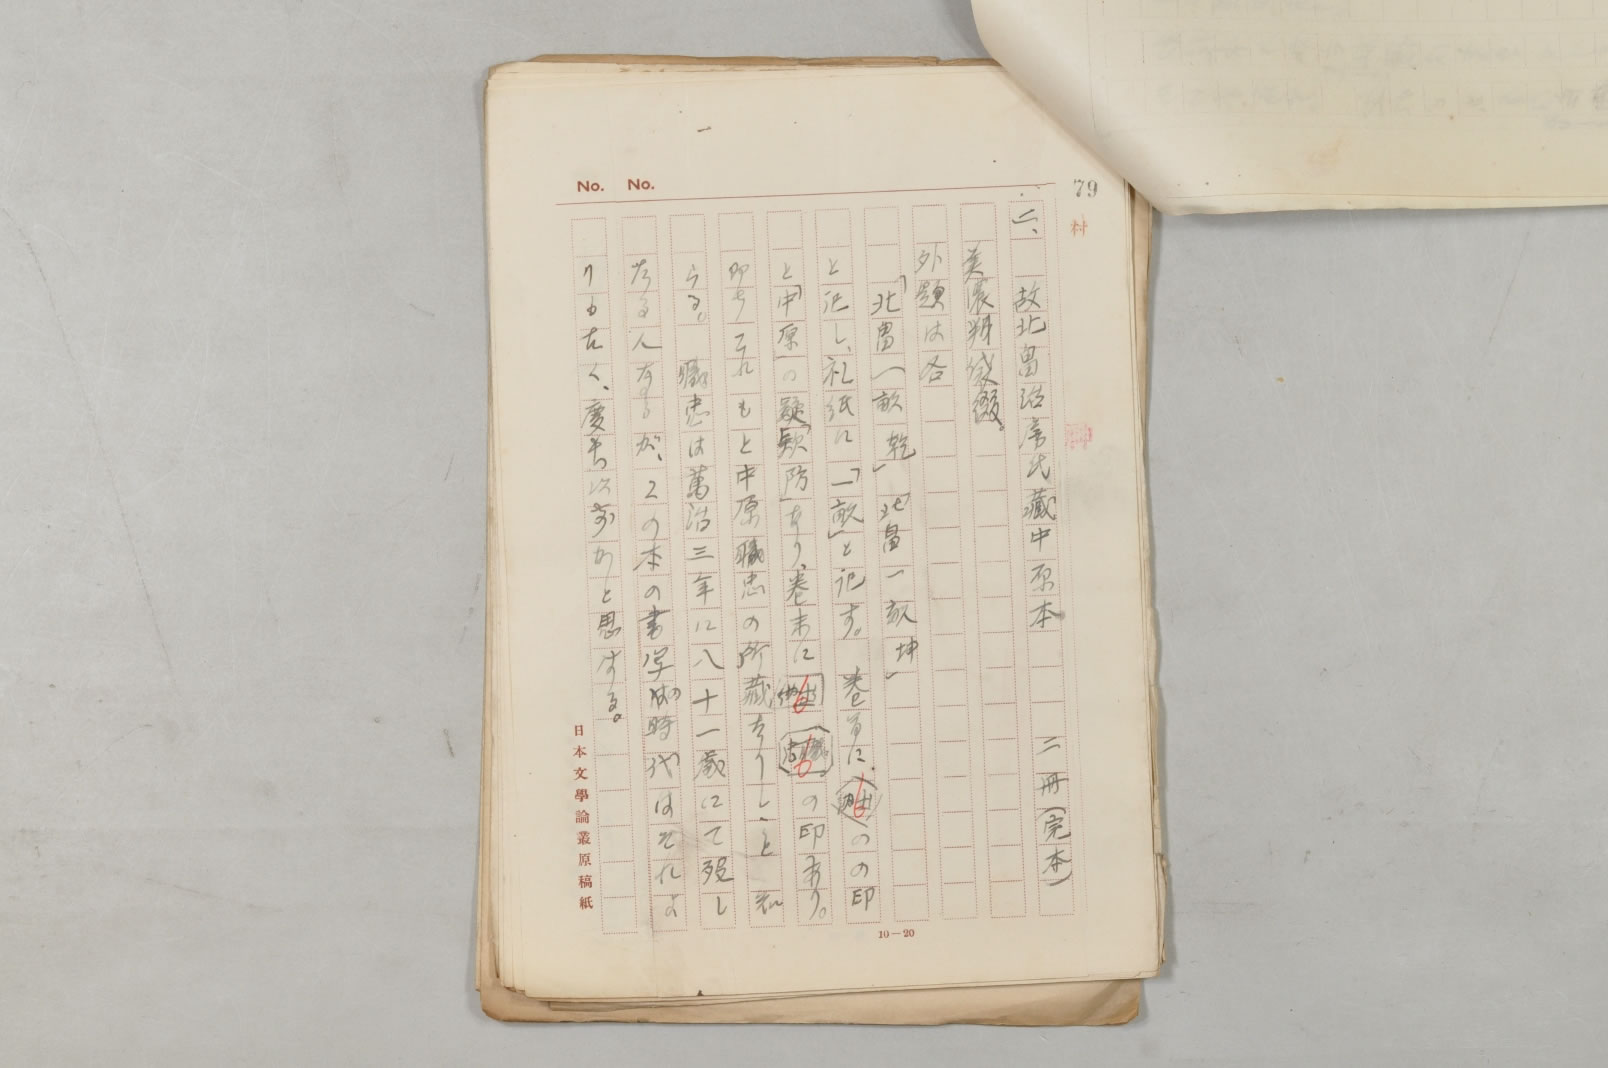 No. No.
79
二、 故北畠治房氏藏中原本 二冊(完本)
美濃判袋綴。
外題は各
「北畠一 乾」 「北畠一 坤」
と記し、 紙に「一 」と記す。 巻首に の印
と「中原」の 防」あり、巻末に の印あり。
即ちこれもと中原職忠の所藏なりしこと知
らる。 職忠は萬治三年に八十一歳にて歿し
たる人なるが、この本の書写の時代はそれよ
りも古く、慶長以前かと思はする。
日本文學論叢原稿紙
10—20